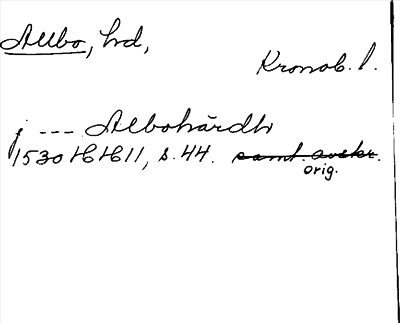 Allbo, hd,
Kronob. l.
j --- Albohärdh
1530 HH 11, s. 44. samt. avskr.
orig.